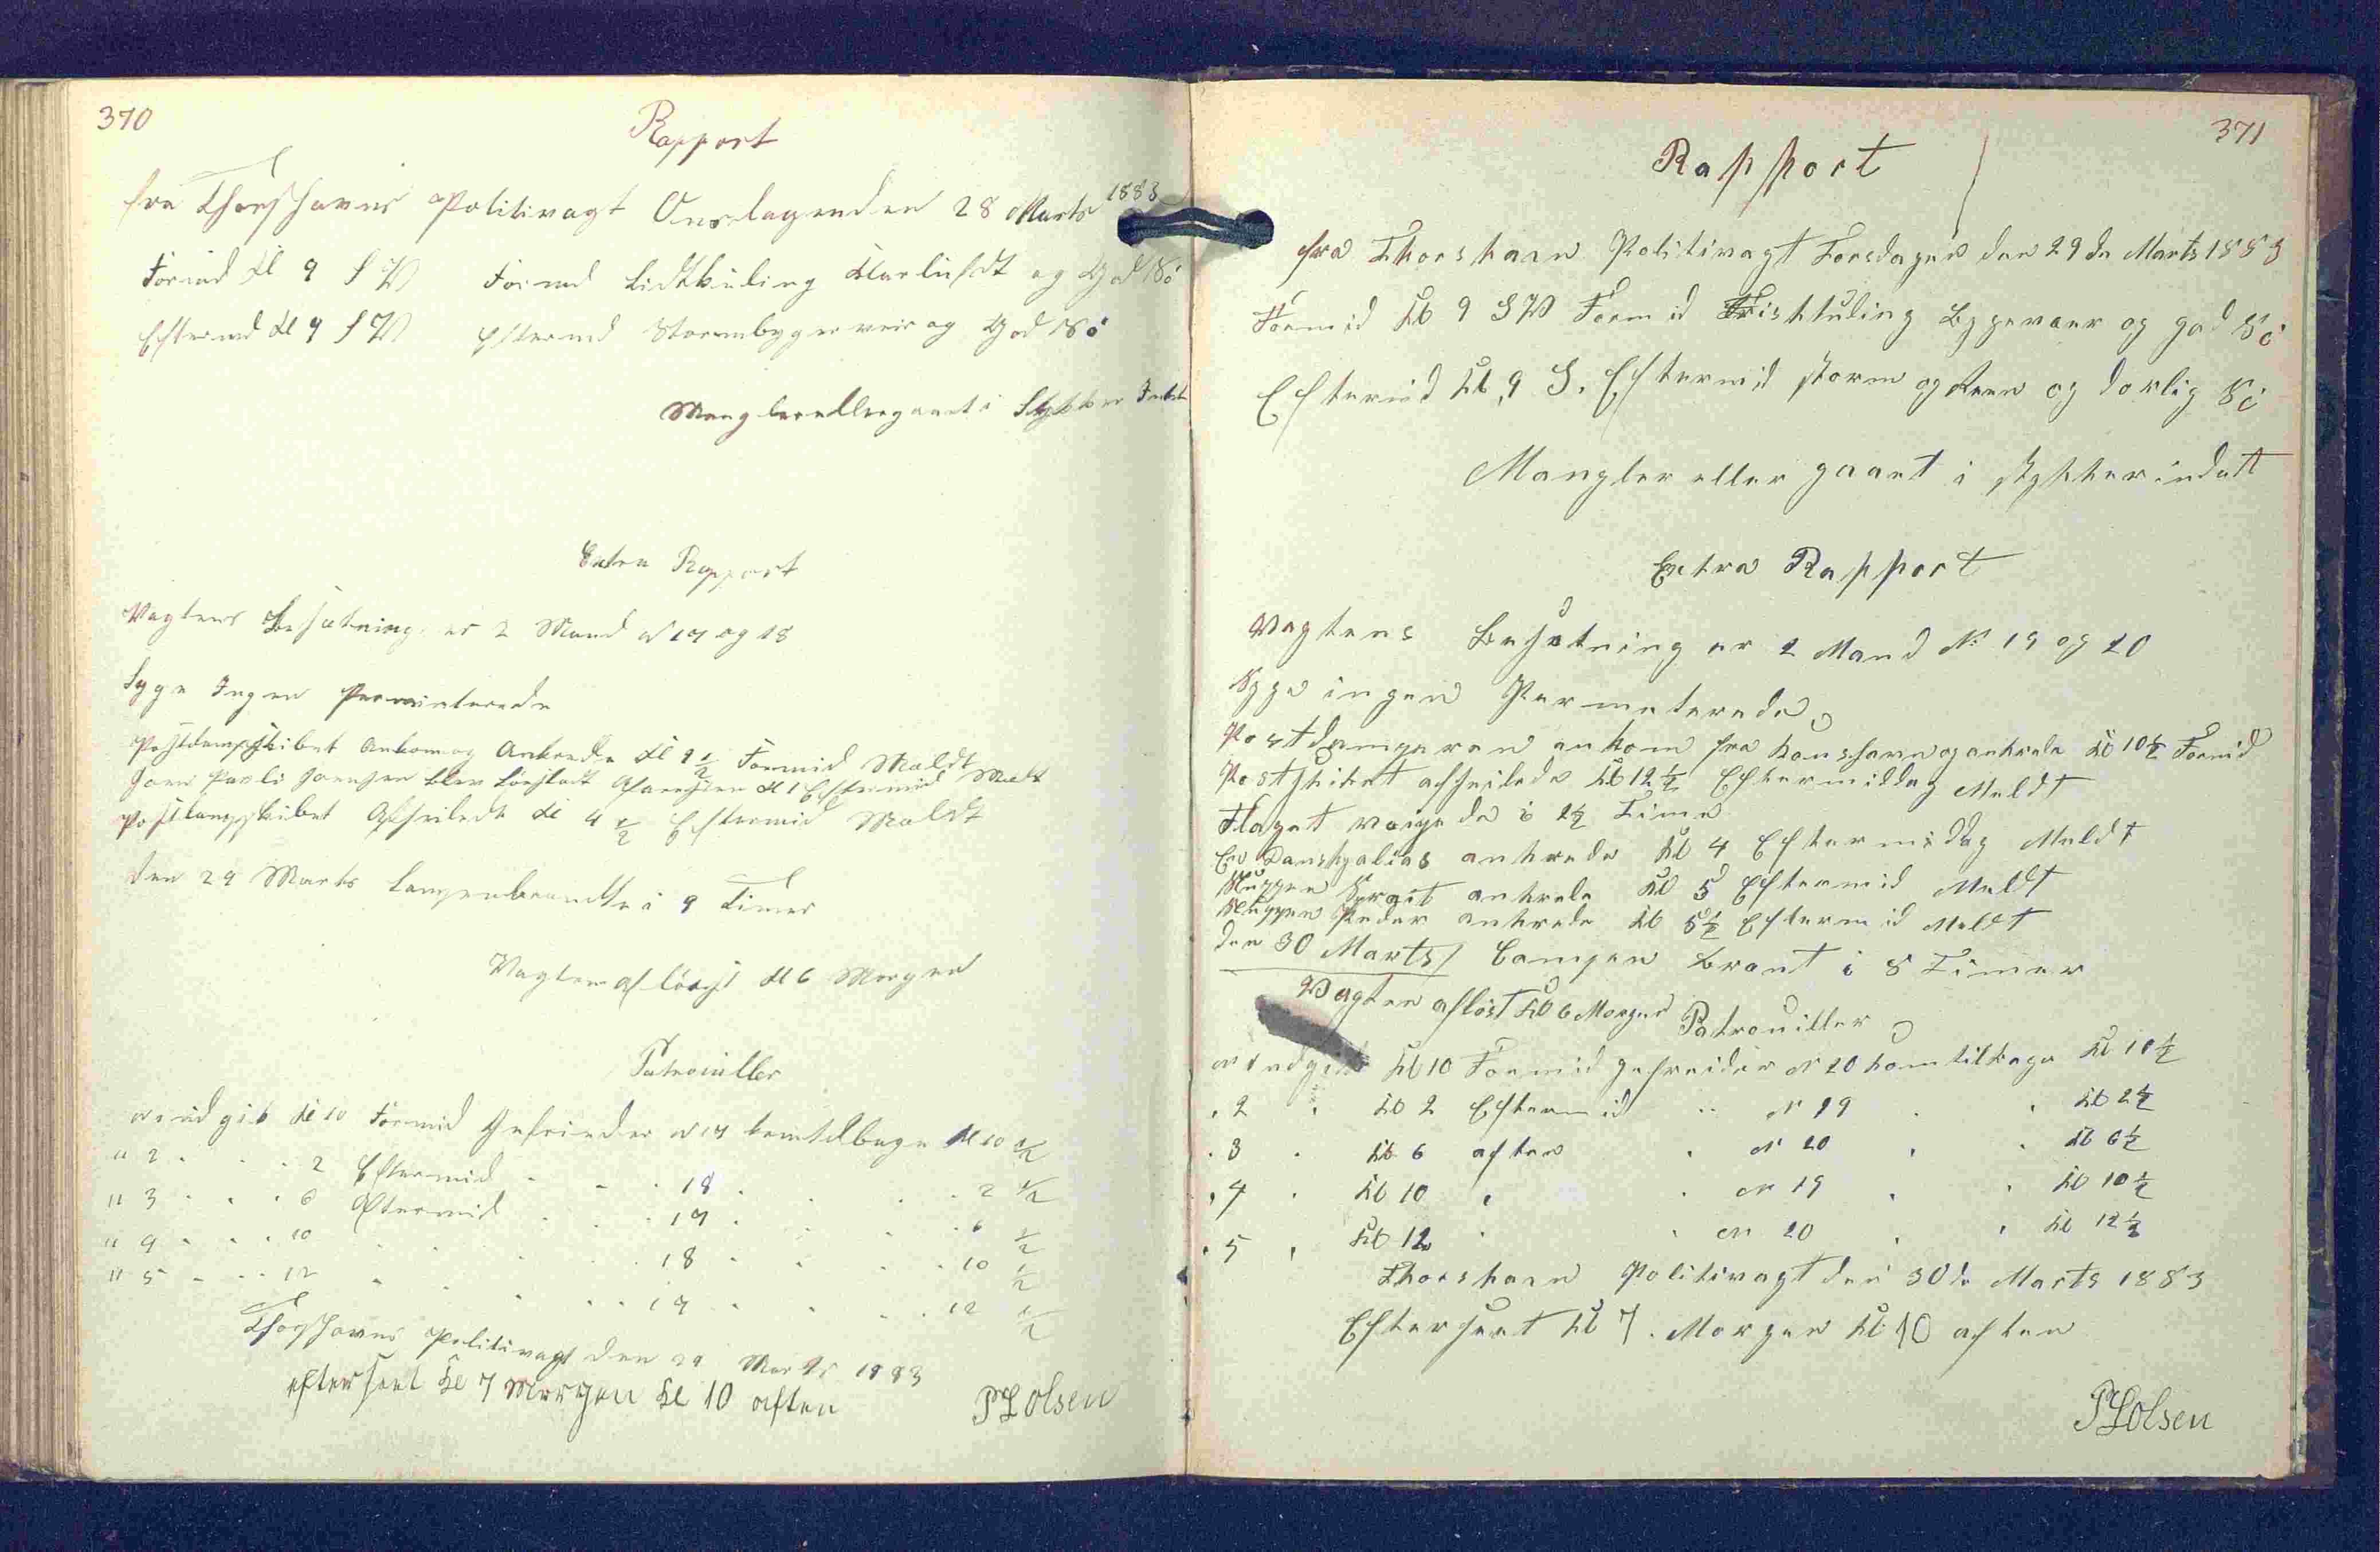 370
Rapport
fra Thorshavns Politivagt Onsdagen den 28 Marts 1883
Formd Kl 9 S W Formd Lidtkuling Klarluft og God Sö
Eftermd Kl 9 S W Eftermd Stormbygerveir og God Sö
Mangler eller gaaet i Stykker Intet
Extra Rapport
Vagtens Besætning er 2 Mand N 17 og 18
Syge Ingen Permiterede
Postdampskibet Ankom og Ankrede Kl 9 1/2 Formid Meldt
Joen Pauli Joensen blev Kl 1 Eftermid Meldt
Postdampskibet Afseilede Kl 4 1/2 Eftermid Meldt
den 29 Marts Lampen brændte i 9 Timer
Vagten aflöst Kl 6 Morgen
Patrouiller
N 1 udgik Kl 10 Formid Gefreider N 17 kom tilbage Kl 10 1/2
" 2 . . . 2 Eftermid . . . 18 . . . . 2 1/2
" 3 . . . 6 Eftermid . . . 17 . . . . 6 1/2
" 4 . . . 10 . . . . 18 . . . . 10 1/2
" 5 . . . 12 . . . . 17 . . . . 12 1/2
Thorshavns Politivagt den 29 Marts 1883
efterseet Kl 7 Morgen Kl 10 aften
P Olsen
371
Rapport
fra Thorshavn Politivagt Torsdagen den 29de Marts 1883
Formid Kl 9 S W Formid Friskkuling Bygevær og god Sö
Eftermid Kl, 9 S. Eftermid storm og Reen og dorlig Sö
Mangler eller gaaet i stykker indett
Extra Rapport
Vagtens Besetning er 2 Mand N: 19 og 20
Syge ingen Permeterede
Postdamperen ankom fra og ankrede Kl 10 1/2 Formid
Postskibet afseilede Kl 12 1/2 Eftermiddag Meldt
Flaget vaiede i 2 1/2 Time
En Dansk galias ankrede Kl 4 Eftermidag Meldt
Sluppen ankrede Kl 5 Eftermid Meldt
Sluppen Peder ankrede Kl 5 1/2 Eftermid Meldt
den 30 Marts / Lampen brant i 8 Timer
Vagten aflöst Kl 6 Morgen
Patrouiller
N 1 udgik Kl 10 Formid gefreider N 20 kom tilbage Kl 10 1/2
, 2 . Kl 2 Eftermid .. N 19 . . Kl 2 1/2
. 3 . Kl 6 aften . N 20 . . Kl 6 1/2
, 4 . Kl 10 , . N 19 . . Kl 10 1/2
. 5 , Kl 12 . . N 20 . . Kl 12 1/2
Thorshavn Politivagt den 30de Marts 1883
Efterseet Kl 7. Morgen Kl 10 aften
P Olsen